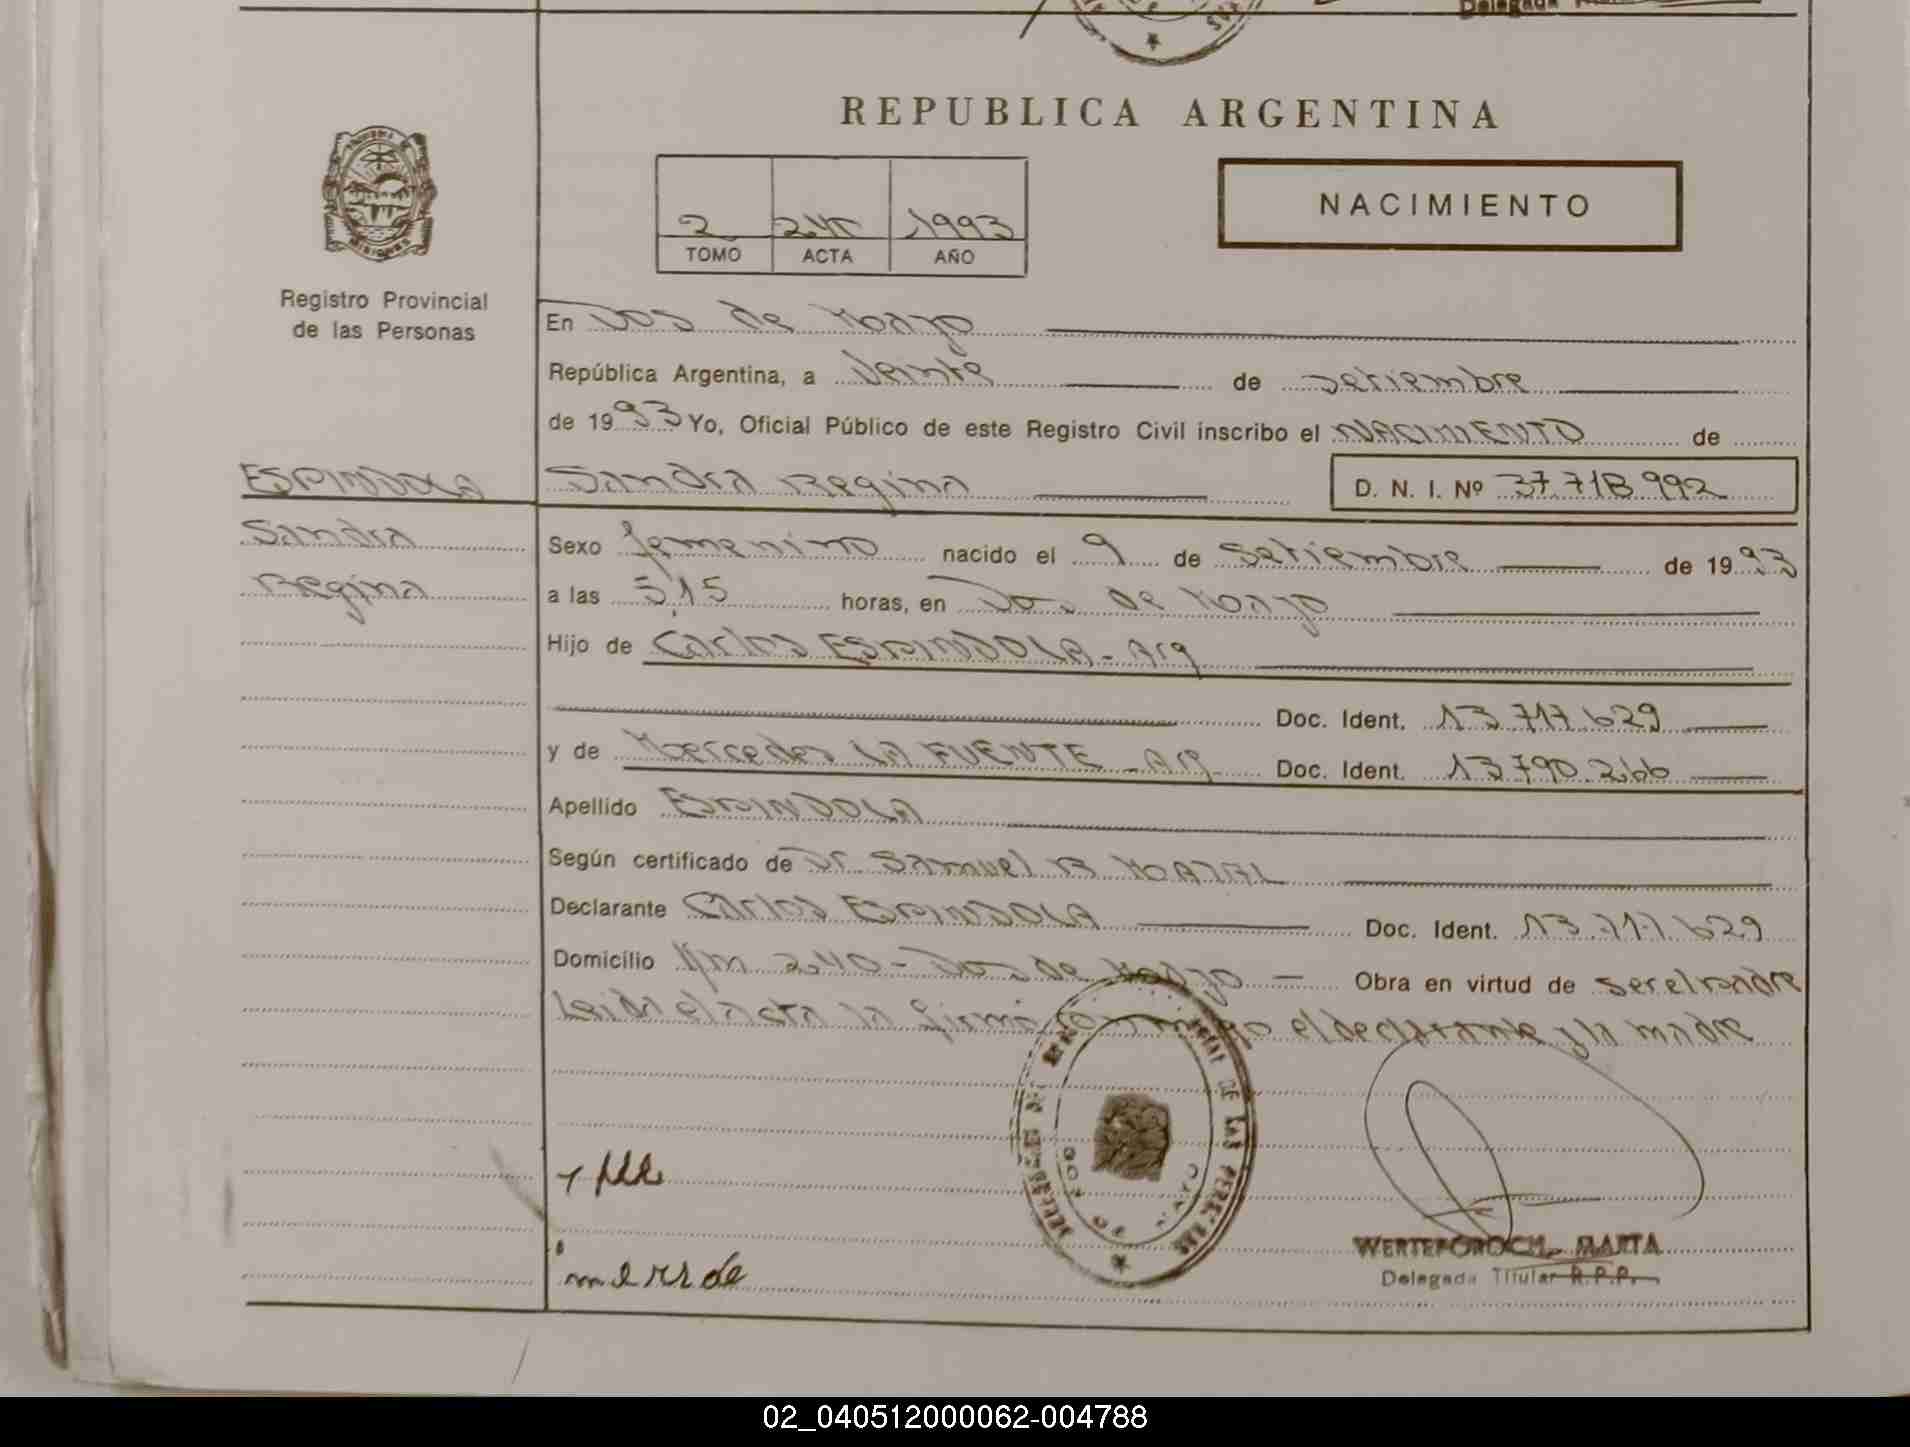 REPUBLICA ARGENTINA
NACIMIENTO
2 1993
TOMO ACTA AÑO
Registro Provincial
de las Personas
En Dos de Mayo
República Argentina, a Veinte de setiembre
de 1993 Yo, Oficial Público de este Registro Civil inscribo el NACIMIENTO de
ESPINDOLA
Sandra Regina
D. N. I. Nº 37.718.992
Sandra
Regina
Sexo femenino nacido el 9 de Setiembre de 1993
a las 5,15 horas, en Dos de Mayo
Hijo de Carlos ESPINDOLA - Arg
Doc. Ident. 13.717.629
y de Mercedes LA FUENTE - Arg Doc. Ident. 13.790.266
Apellido ESPINDOLA
Según certificado de Dr. Samuel
Declarante Carlos ESPINDOLA Doc. Ident. 13.717.629
Domicilio Km 240 - Dos de Mayo - Obra en virtud de ser el padre
Leida el acta la firma conmigo el declarante y la madre
DE LAS
DOS MAYO
MARTA
Delegada Titular R.P.P.
02_040512000062-004788